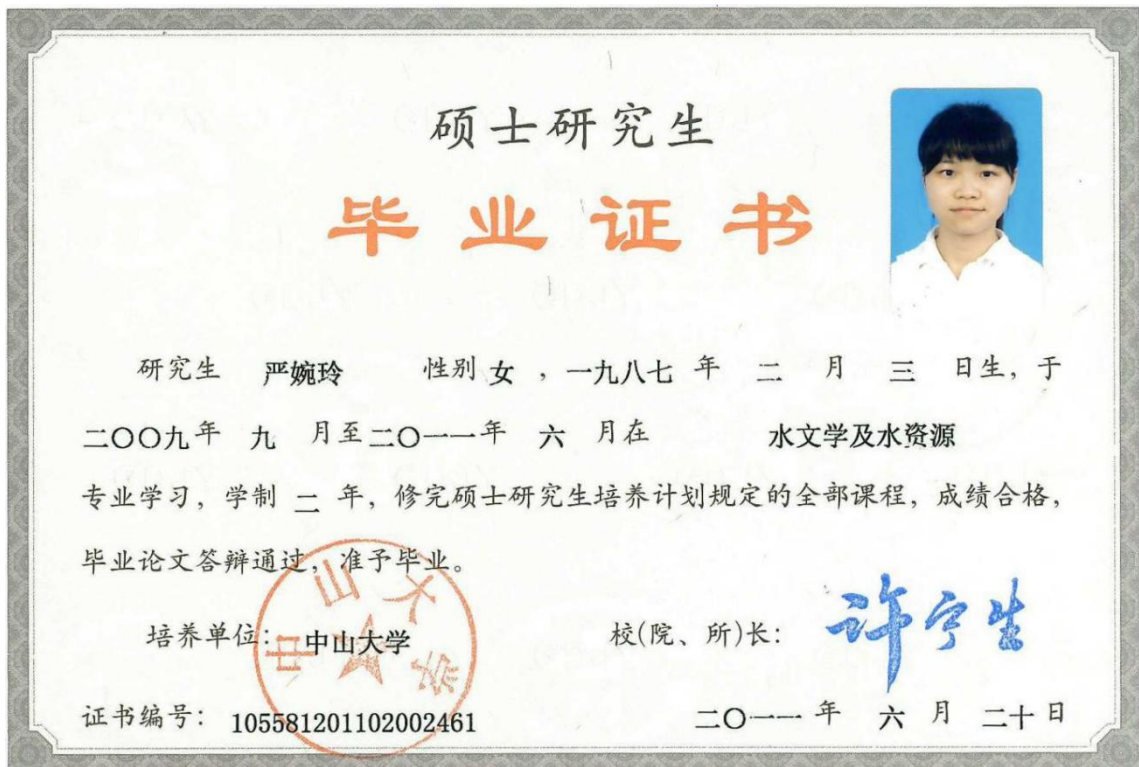 硕士研究生
毕业证书
研究生 严婉玲 性别 女 ，一九八七 年 二 月 三 日生，于
二〇〇九年 九 月至二〇一一年 六 月在 水文学及水资源
专业学习，学制 二 年，修完硕士研究生培养计划规定的全部课程，成绩合格，
毕业论文答辩通过，准予毕业。
培养单位：中山大学 校(院、所)长：许宁生
中山大学
证书编号：105581201102002461 二〇一一 年 六 月 二十 日